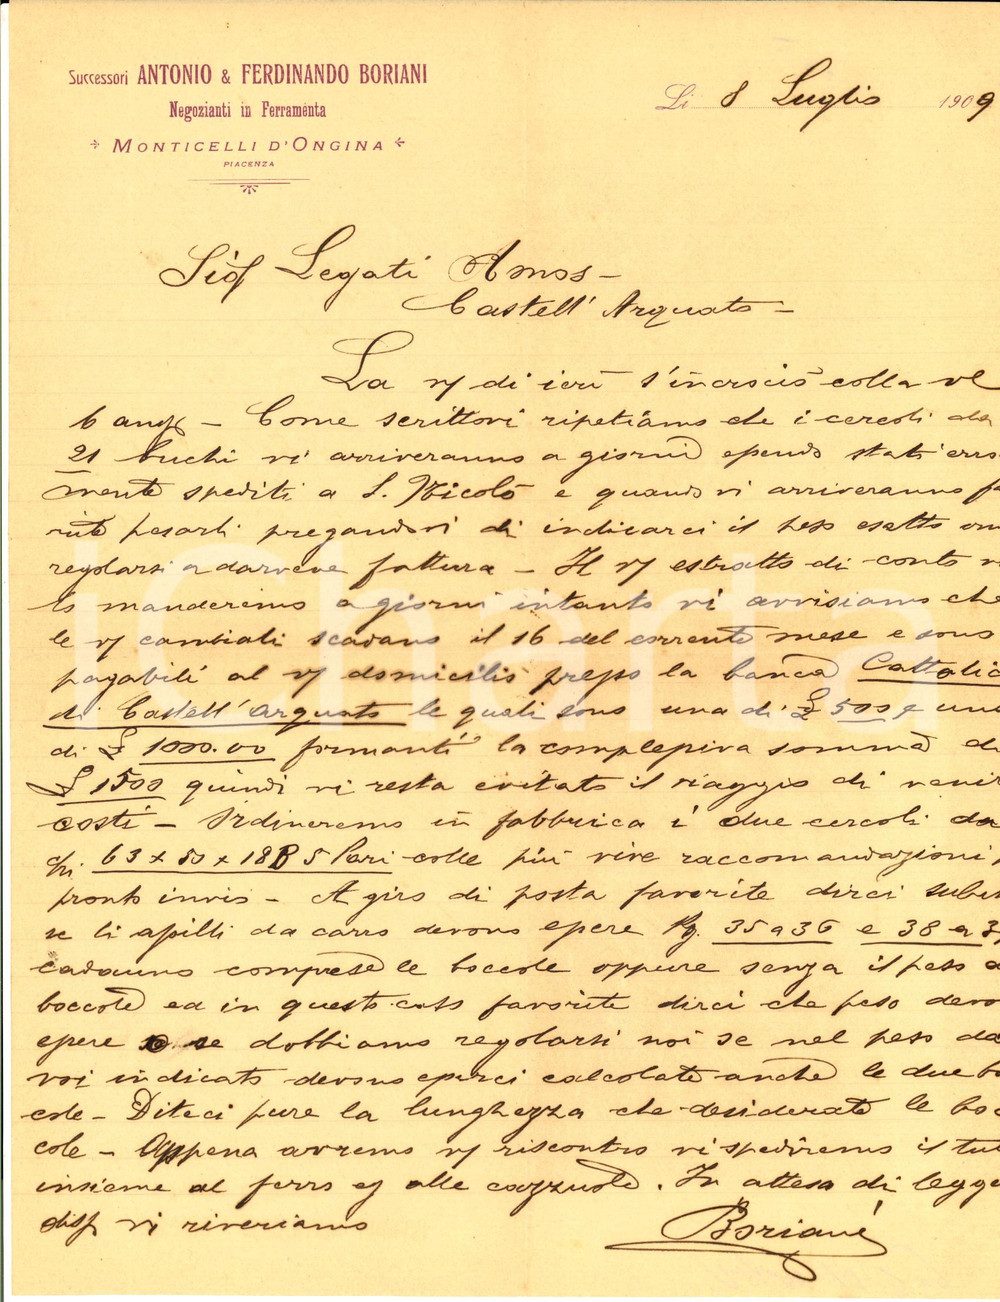 Successori ANTONIO & FERDINANDO BORIANI
Negozianti in Ferramenta
MONTICELLI D'ONGINA
PIACENZA
Li 8 Luglio 1909
Sig Legati Amos -
Castell' Arquato -
La di ieri s'incrociò colla
6 ang - Come scrittovi ripetiamo che i cercoli da
21 buchi vi arriveranno a giorni essendo stati erro
mente spediti a S. Nicolò e quando vi arriveranno fa
rete pesarli pregandovi di indicarci il peso esatto on
regolarsi a darvene fattura - Il estratto di conto v
lo manderemo a giorni intanto vi avvisiamo che
le cambiali scadano il 16 del corrente mese e sono
pagabili al domicilio presso la banca Cattolic
di Castell' arquato le quali sono una di £ 500 e una
di £ 1000.00 formanti la complessiva somma di
£ 1500 quindi vi resta evitato il viaggio di venir
costi - Ordineremo in fabbrica i due cercoli da
63 x 50 x 18 5 Pari colle più vive raccomandazioni p
pronto invio - A giro di posta favorite dirci subit
se li assilli da carro devono essere Kg. 35 a 36 e 38 a 3
cadauno comprese le boccole oppure senza il peso d
boccole ed in questo caso favorite dirci che peso devo
essere se dobbiamo regolarsi noi se nel peso da
voi indicato devono esserci calcolate anche le due bo
cole - Diteci pure la lunghezza che desiderate le boc
cole - Appena avremo riscontro vi spediremo il tut
insieme al ferro alle cazzuole. In attesa di legge
vi riveriamo
Boriani
iCharta